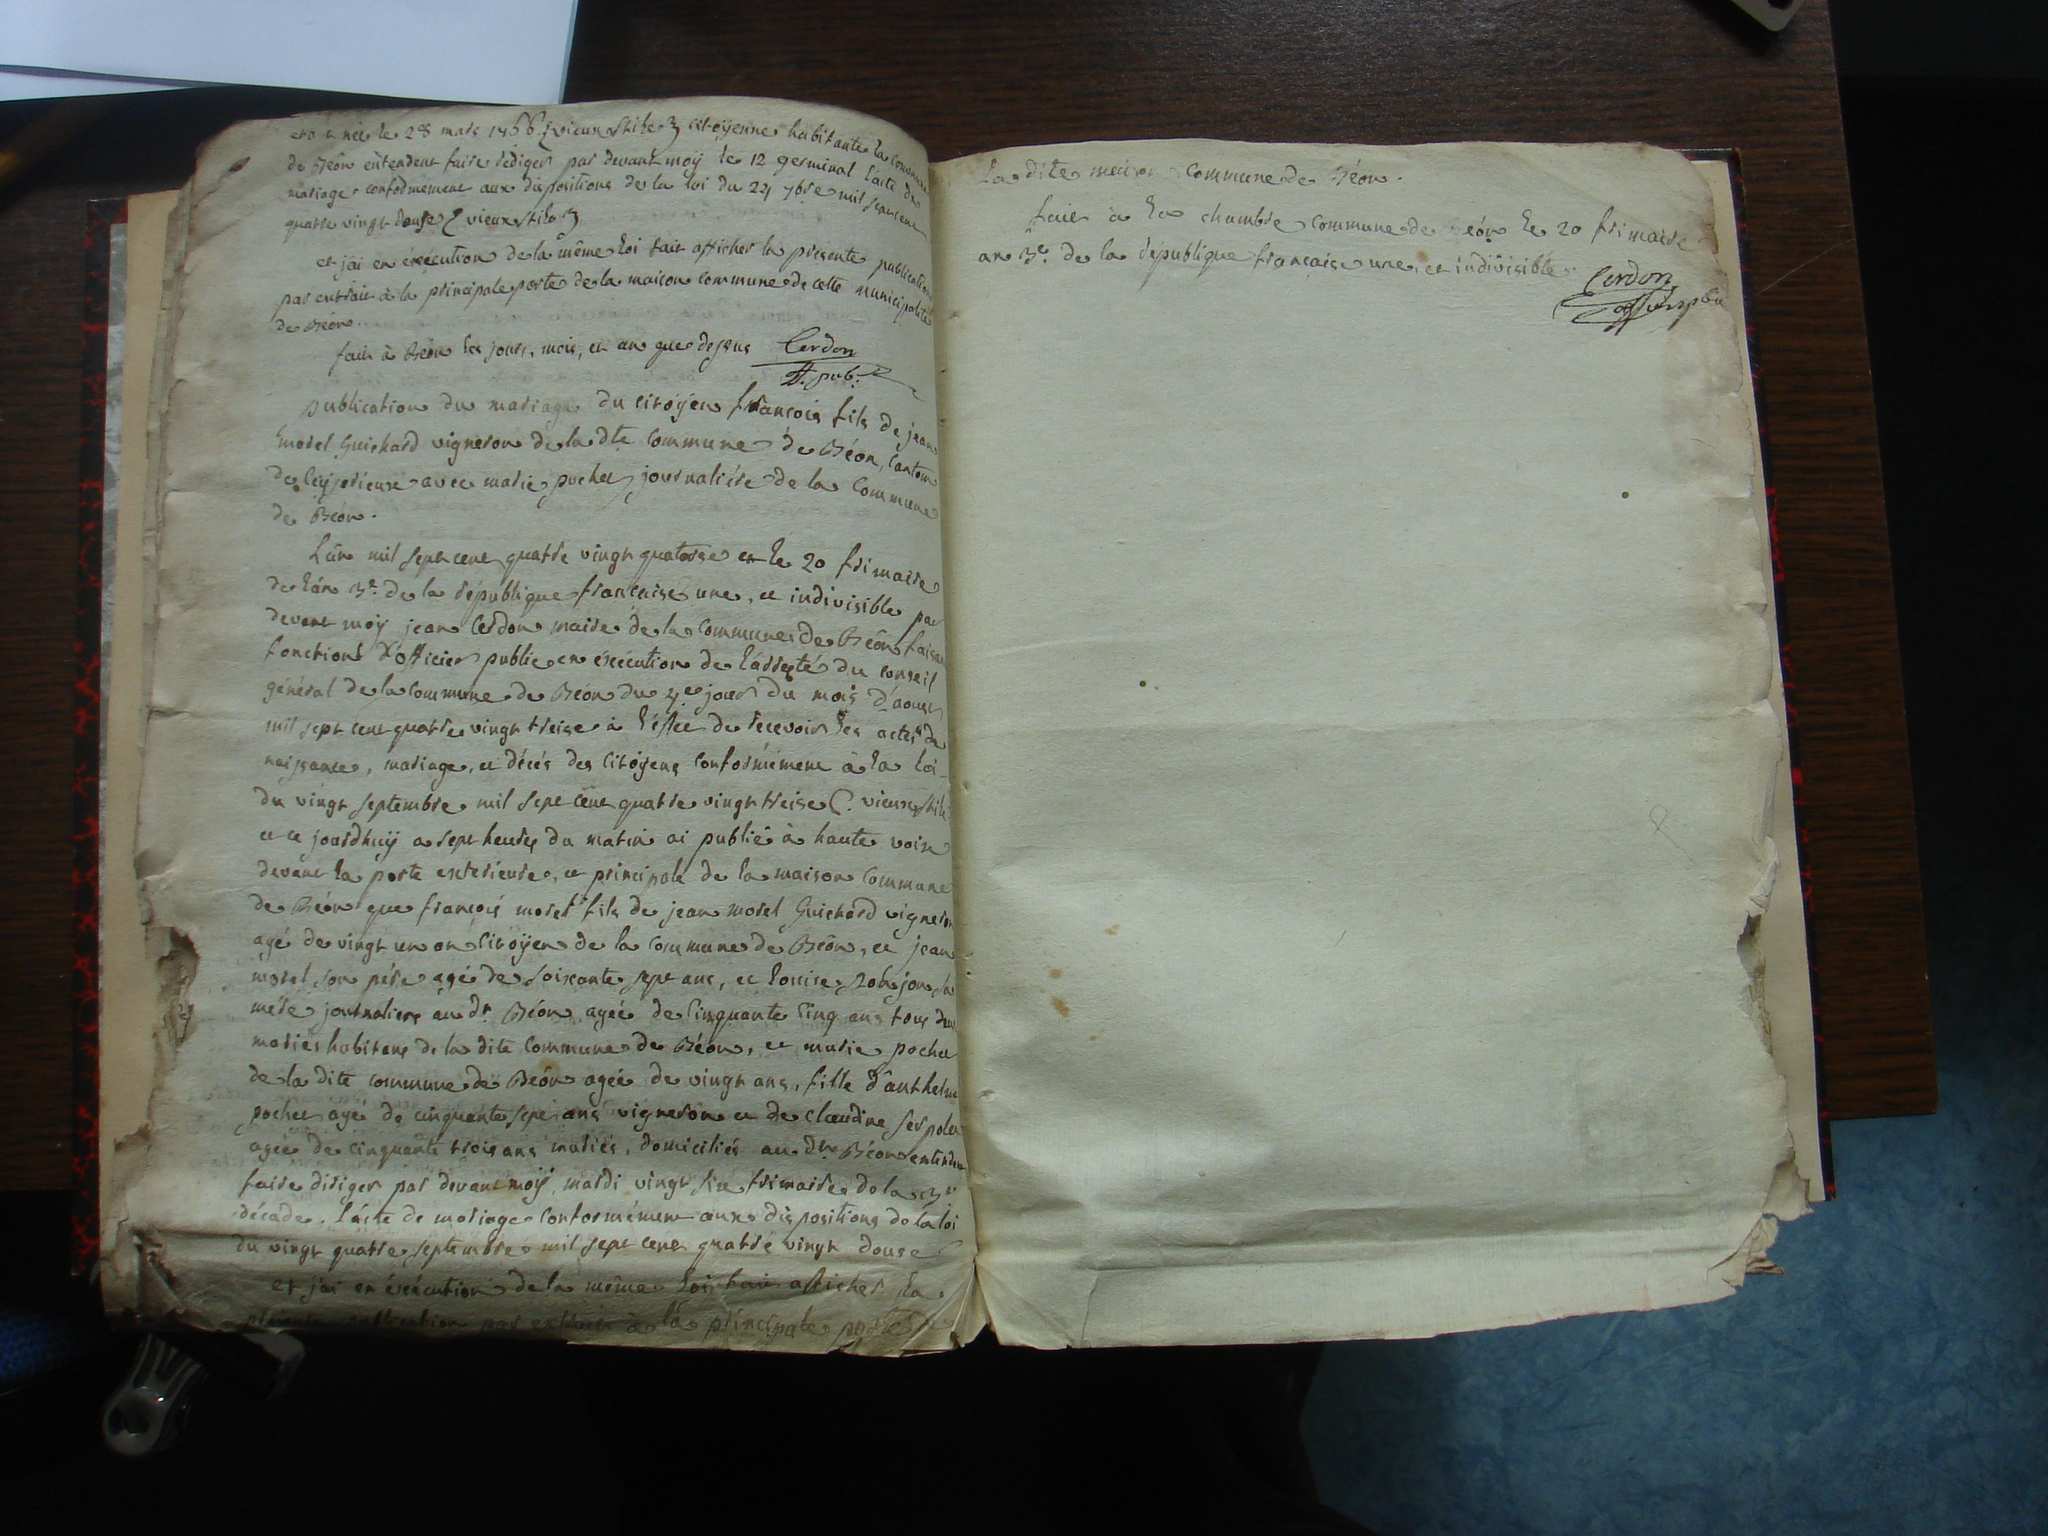 née le 28 mars 1766 (vieux stile) citoÿenne habitante la commune
de Béon entendent faire rédiger par devant moÿ le 12 germinal l'acte de
mariage conformément aux dispositions de la loi du 24 7bre mil sept cent
quatre vingt douse (vieux stile)
et j'ai en éxécution de la même loi fait afficher la presente publication
par extrait à la principale porte de la maison commune de cette municipalité
de Béon.
fait à Béon les jour, mois, et an que dessus Cerdon
off. pub.
publication du mariage du citoÿen françois fils de jean
morel Guichard vigneron de la dte commune de Béon, canton
de Ceÿzerieux avec marie pochet journalière de la Commune
de Béon.
L'an mil sept cent quatre vingt quatorse et le 20 frimaire
de l'an 3e. de la république française une, et indivisible par
devant moÿ jean Cerdon maire de la commune de Béon faisant
fonctions d'officier public en éxécution de l'arreté du conseil
général de la commune de Béon du 4e jour du mois d'aoust
mil sept cent quatre vingt treise à l'effet de recevoir les actes de
naissance, mariage, et décés des citoÿens conformément à la loi
du vingt septembre mil sept cent quatre vingt treise (vieux stile
et ce jourdhuÿ a sept heures du matin ai publié à haute voix
devant la porte exterieure, et principale de la maison commune
de Béon que françois morel fils de jean morel Guichard vigneron
agé de vingt un an citoÿen de la commune de Béon, et jean
morel son père agé de soixante sept ans, et Louise Robjon sa
mère journaliers au dt Béon agée de cinquante cinq ans tous deux
mariés habitans de la dite commune de Béon, et marie pochet
de la dite commune de Béon agée de vingt ans, fille d'anthelme
pochet agé de cinquante sept ans vigneron et de claudine serpolet
agée de cinquante trois ans mariés, domiciliés au dt Béon entendent
faire diriger par devant moÿ mardi vingt six frimaire de la 3e
décade. l'acte de mariage conformément aux dispositions de la loi
du vingt quatre septembre mil sept cent quatre vingt douse
et j'ai en éxécution de la même loi fait afficher la
présente publication par extrait à la principale porte de
La dite maison commune de Béon.
fait à la chambre commune de Béon le 20 frimaire
an 3e. de la république française une, et indivisible.
Cerdon